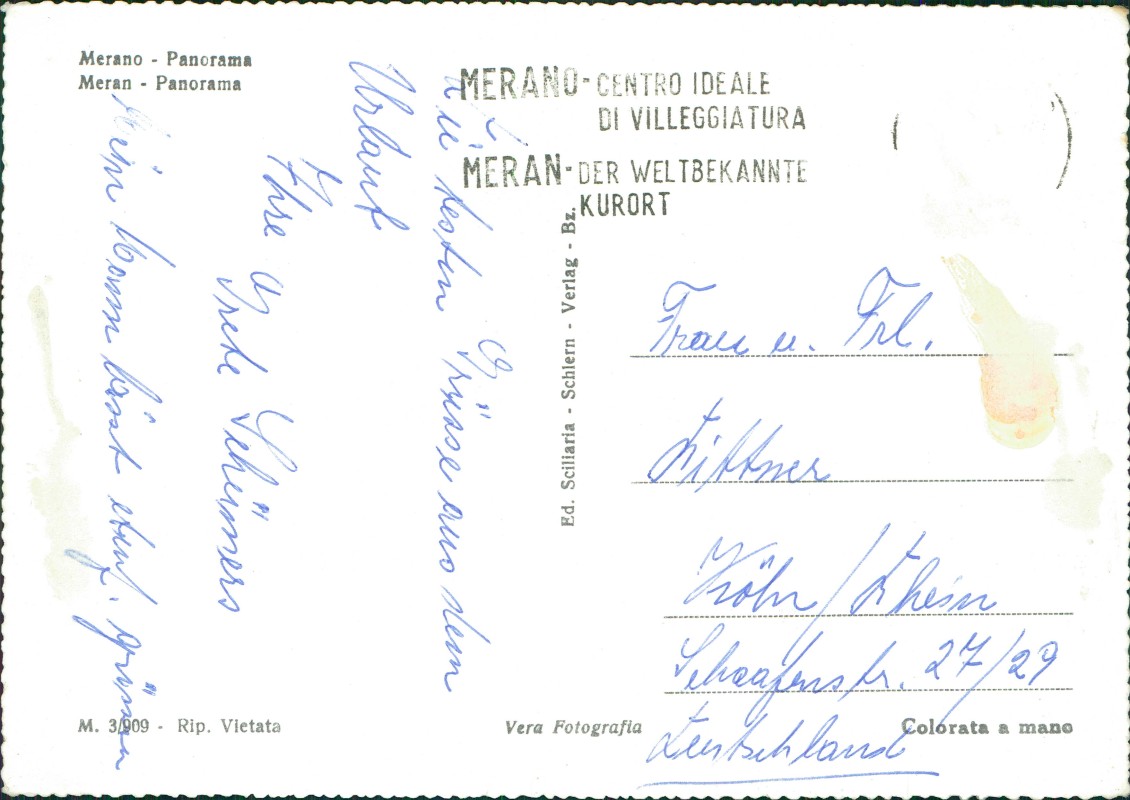 Merano - Panorama
Meran - Panorama
MERANO - CENTRO IDEALE
DI VILLEGGIATURA
MERAN - DER WELTBEKANNTE
KURORT
besten Grüsse aus dem
Urlaub
Ihre
Grete
Mein Mann lässt grüssen
Ed. Sciliaria - Schlern - Verlag - Bz.
Frau u. Frl.
Littner
Köln / Rhein
Schaafenstr. 27/29
Deutschland
M. 3/909 - Rip. Vietata
Vera Fotografia
Colorata a mano